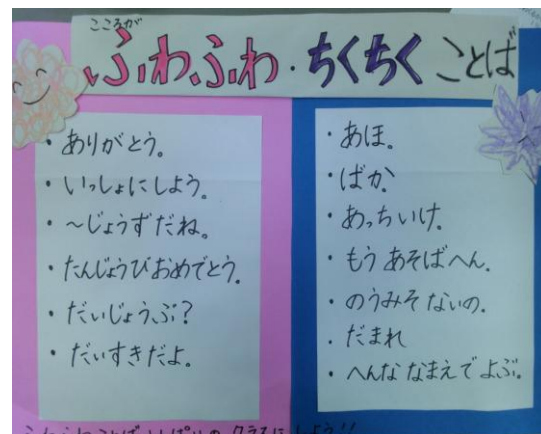 こころが
ふわふわ・ちくちくことば
・ありがとう。
・いっしょにしよう。
・～じょうずだね。
・たんじょうびおめでとう。
・だいじょうぶ？
・だいすきだよ。
・あほ。
・ばか。
・あっちいけ。
・もうあそばへん。
・のうみそないの。
・だまれ
・へんななまえでよぶ。
ふわふわことばいっぱいのクラスにしよう!!